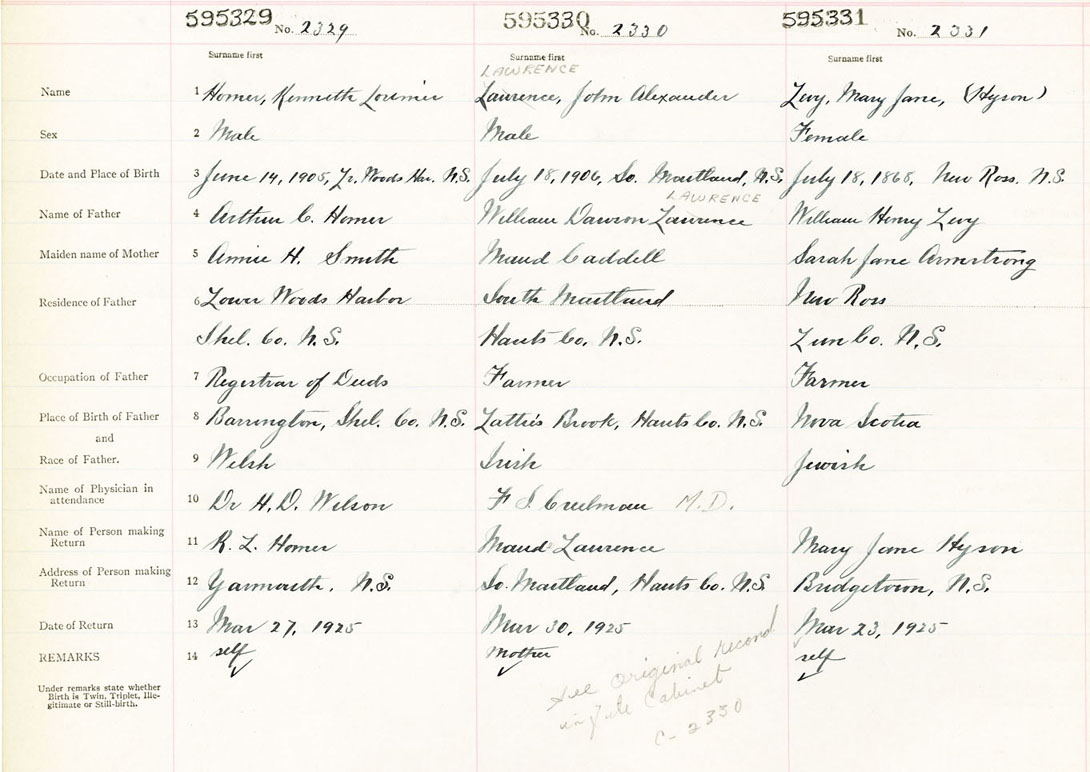 595329 No. 2329 595330 No. 2330 595331 No. 2331
Surname first Surname first Surname first
LAWRENCE
Name 1 Homer, Kenneth Lorimer Laurence, John Alexander Levy, Mary Jane, (Hyson)
Sex 2 Male Male Female
Date and Place of Birth 3 June 14, 1905, Lr. Woods Har. N.S. July 18, 1906, So. Maitland, N.S. July 18, 1868, New Ross. N.S.
LAWRENCE
Name of Father 4 Arthur C. Homer William Dawson Laurence William Henry Levy
Maiden name of Mother 5 Annie H. Smith Maud Caddell Sarah Jane Armstrong
Residence of Father 6 Lower Woods Harbor South Maitland New Ross
Shel. Co. N.S. Hants Co. N.S. Lun Co. N.S.
Occupation of Father 7 Registrar of Deeds Farmer Farmer
Place of Birth of Father 8 Barrington, Shel. Co. N.S. Lattie's Brook, Hants Co. N.S. Nova Scotia
and
Race of Father. 9 Welsh Irish Jewish
Name of Physician in
attendance 10 Dr H. D. Wilson F S. Creelman M.D.
Name of Person making
Return 11 K. L. Homer Maud Laurence Mary Jane Hyson
Address of Person making
Return 12 Yarmouth. N.S. So. Maitland, Hants Co. N.S. Bridgetown, N.S.
Date of Return 13 Mar 27, 1925 Mar 30, 1925 Mar 23, 1925
REMARKS 14 self Mother self
Under remarks state whether
Birth is Twin, Triplet, Ille-
gitimate or Still-birth.
See original record
in File Cabinet
C-2330